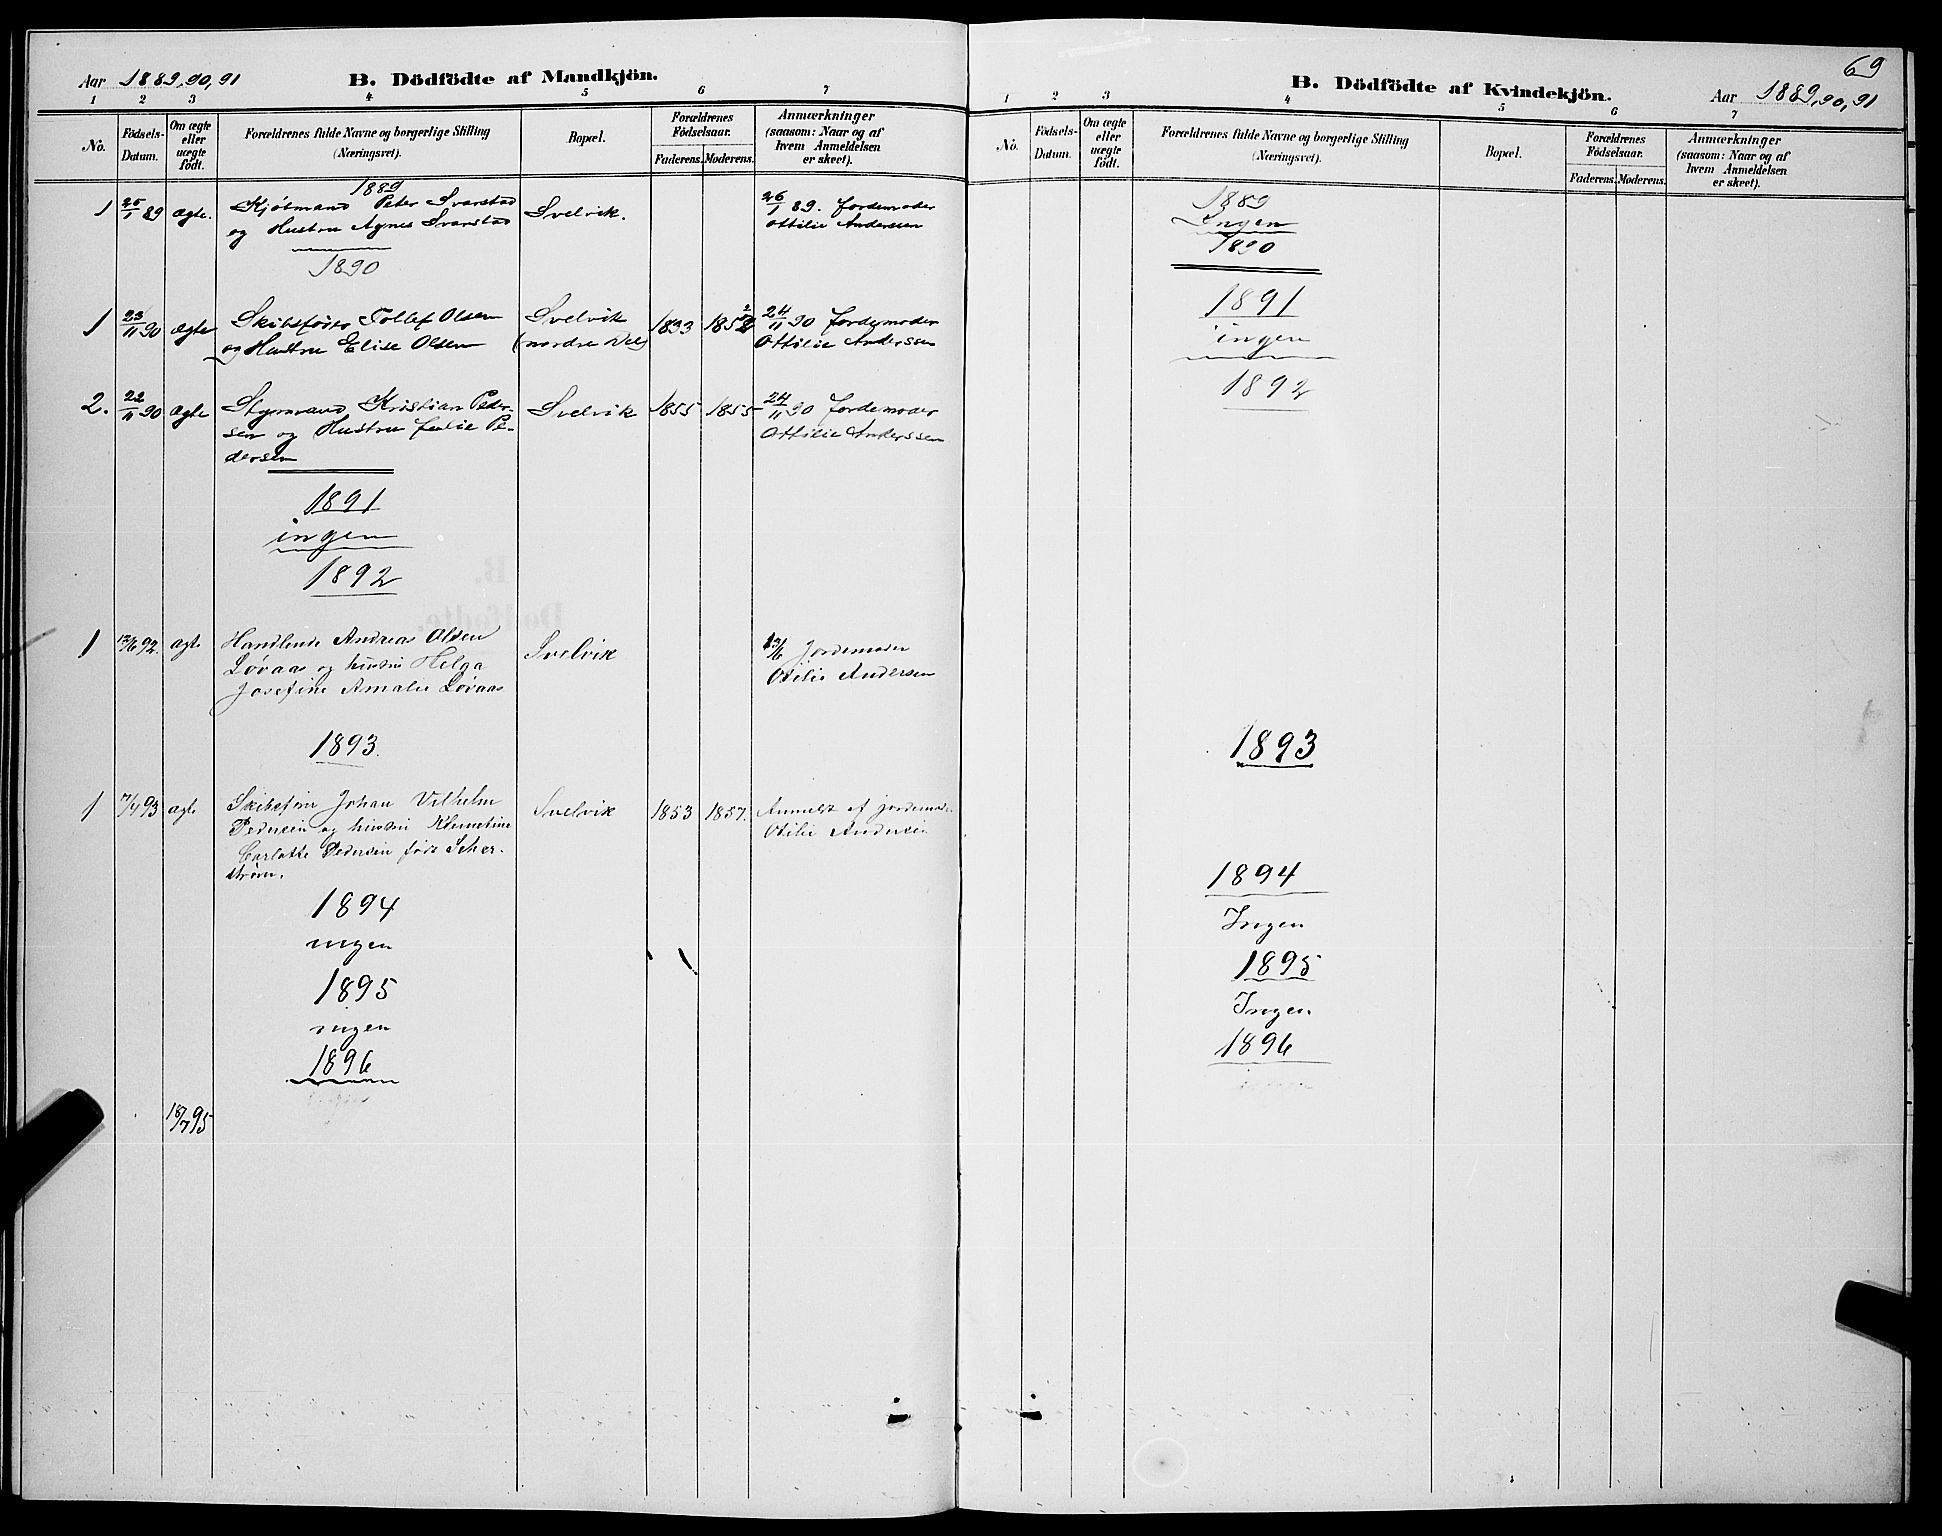 Aar 1889, 90, 91
B. Dödfödte af Mandkjön.
1 2 3 4 5 6 7
No.
Födsels-
Datum.
Om ægte
eller
uægte
födt.
Forældrenes fulde Navne og borgerlige Stilling
(Næringsvei).
Bopæl.
Forældrenes
Födselsaar.
Faderens. Moderens.
Anmærkninger
(saasom: Naar og af
hvem Anmeldelsen
er skeet).
1889
1 25/1 89 ægte. Kjøbmand Peter Svarstad Svelvik. 26/1 89. Jordemoder
og Hustru Agnes Svarstad Ottilie Anderssen
1890
1 23/11 90 ægte Skibsfører Tollef Olsen Svelvik 1833 24/11 90 Jordemoder
og Hustru Elise Olsen (nordre Del) Ottilie Anderssen
2. 22/11 90 ægte Styrmand Kristian Peder- Svelvik 1855 1855 24/11 90 Jordemoder
sen og Hustru Julie Pe- Ottilie Anderssen
dersen
1891
ingen
1892
1 12/6 92. ægte Handlende Andreas Olsen Svelvik Jordemoder
Løvaas og hustru Helga Otilie Andersen
Josefine Amalie Løvaas
1893.
1 7/4 93 ægte Skibsfører Johan Vilhelm Svelvik 1853 1857. Anmeldt af jordemoder
Pedersen og hustru Klemetine Otilie Andersen
Carlotte Pedersen født Scher-
strøm.
1894
ingen
1895
ingen
1896
ingen
18/7 95
69
B. Dödfödte af Kvindekjön.
Aar 1889, 90, 91
1 2 3 4 5 6 7
No.
Födsels-
Datum.
Om ægte
eller
uægte
födt.
Forældrenes fulde Navne og borgerlige Stilling
(Næringsvei).
Bopæl.
Forældrenes
Födselsaar.
Faderens. Moderens.
Anmærkninger
(saasom: Naar og af
hvem Anmeldelsen
er skeet).
1889
Ingen
1890
1891
ingen
1892
1893
1894
Ingen
1895
Ingen
1896
ingen